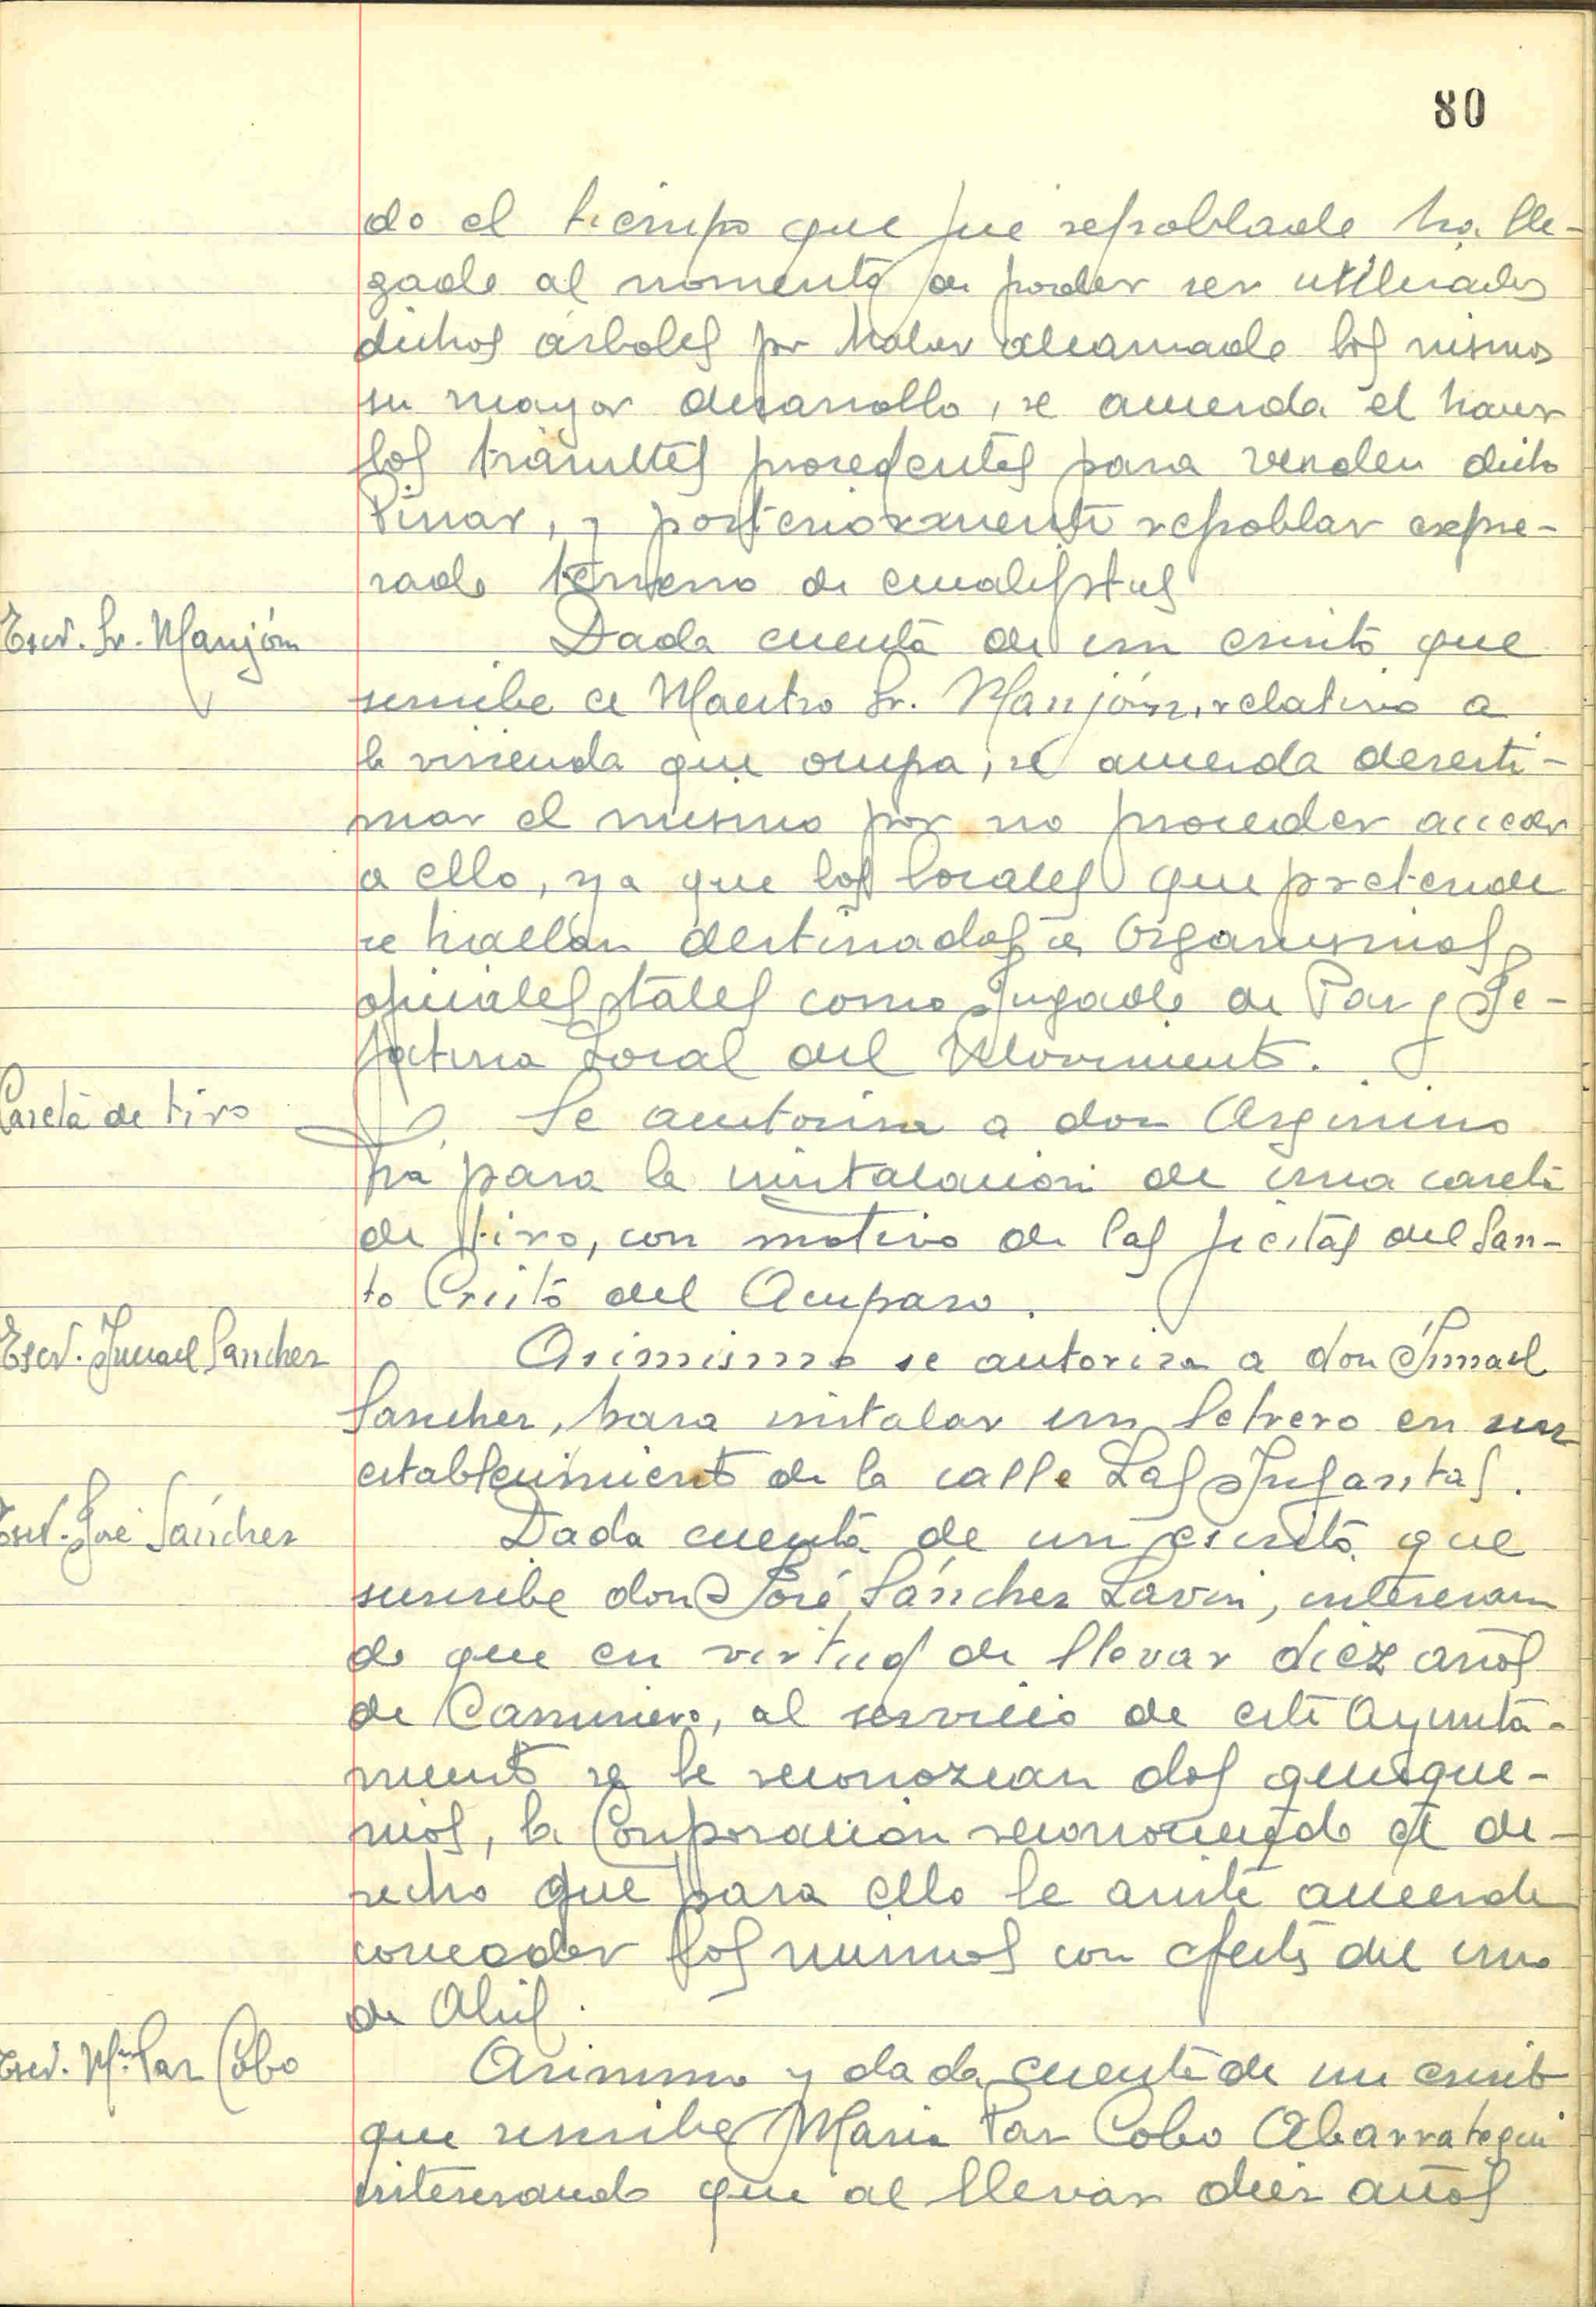 80
do el tiempo que fué repoblado ha lle-
gado al momento de poder ser utilizados
dichos árboles por haber alcanzado los mismos
su mayor desarrollo, se acuerda el hacer
los trámites procedentes para vender dicho
Pinar, y posteriormente repoblar expre-
sado terreno de eucaliptus
Escr. Sr. Manjón
Dada cuenta de un escrito que
suscribe el Maestro Sr. Manjón, relativo a
la vivienda que ocupa, se acuerda desesti-
mar el mismo por no proceder acceder
a ello, ya que los locales que pretende
se hallan destinados a Organismos
oficiales tales como Juzgado de Paz y Je-
fatura Local del Movimiento.
Caseta de tiro
Se autoriza a don Argimiro
para la instalación de una caseta
de tiro, con motivo de las fiestas del San-
to Cristo del Amparo.
Escr. Ismael Sanchez
Asimismo se autoriza a don Ismael
Sanchez, para instalar un letrero en un
establecimiento de la calle Las Infantas.
Escr. José Sánchez
Dada cuenta de un escrito que
suscribe don José Sánchez Lavin, interesan
do que en virtud de llevar diez años
de Caminero, al servicio de este Ayunta-
miento se le reconozcan dos quinque-
nios, la Corporación reconociendo el de-
recho que para ello le asiste acuerda
conceder los mismos con efectos del uno
de Abril.
Escr. Mª Paz Cobo
Asimismo y dada cuenta de un escrito
que suscribe Maria Paz Cobo Abarrategui
interesando que al llevar diez años